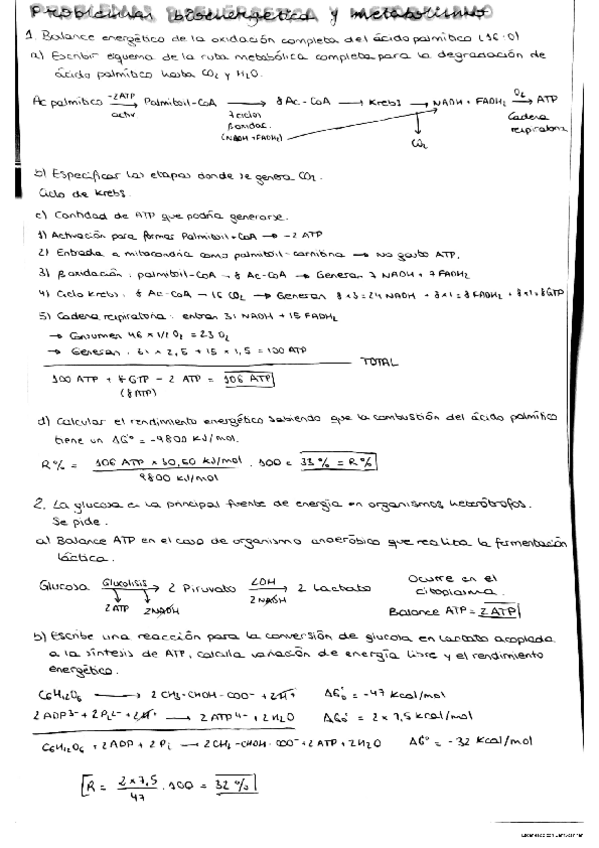 PROBLEMAS BIOENERGÉTICA y METABOLISMO
1. Balance energético de la oxidación completa del ácido palmítico (16:0)
a) Escribir esquema de la ruta metabólica completa para la degradación de
ácido palmítico hasta CO2 y H2O.
Ac palmítico —-2ATP→ Palmitoil-CoA → 8 Ac-CoA → Krebs → NADH + FADH2 —O2→ ATP
activ 7 ciclos Cadena
βoxidac. respiratoria
(NADH+FADH2) CO2
b) Especificar las etapas donde se genera CO2.
Ciclo de Krebs.
c) Cantidad de ATP que podría generarse.
1) Activación para formar Palmitoil-CoA → -2 ATP
2) Entrada a mitocondria como palmitoil-carnitina → No gasto ATP.
3) βoxidación: palmitoil-CoA → 8 Ac-CoA → Generan 7 NADH + 7 FADH2
4) Ciclo Krebs: 8 Ac-CoA → 16 CO2 → Generan 8×3=24 NADH + 8×1=8 FADH2 + 8×1=8GTP
5) Cadena respiratoria: entran 31 NADH + 15 FADH2
→ Consumen 46 × 1/2 O2 = 23 O2
→ Generan: 31 × 2,5 + 15 × 1,5 = 100 ATP
TOTAL
100 ATP + 8 GTP - 2 ATP = 106 ATP
(8 ATP)
d) Calcular el rendimiento energético sabiendo que la combustión del ácido palmítico
tiene un ΔG° = -9800 KJ/mol.
R% = 106 ATP × 30,50 KJ/mol / 9800 KJ/mol · 100 = 33 % = R%
2. La glucosa es la principal fuente de energía en organismos heterótrofos.
Se pide.
a) Balance ATP en el caso de organismo anaeróbico que realiza la fermentación
láctica.
Glucosa —Glucolisis→ 2 Piruvato —LDH→ 2 Lactato Ocurre en el
2 ATP 2NADH 2 NADH citoplasma.
Balance ATP = 2 ATP
b) Escribe una reacción para la conversión de glucosa en lactato acoplada
a la síntesis de ATP, calcula variación de energía libre y el rendimiento
energético.
C6H12O6 → 2 CH3-CHOH-COO- + 2H+ ΔG°' = -47 Kcal/mol
2 ADP3- + 2Pi2- + 2H+ → 2 ATP4- + 2H2O ΔG°' = 2 × 7,5 Kcal/mol
C6H12O6 + 2ADP + 2Pi → 2CH3-CHOH-COO- + 2ATP + 2H2O ΔG° = -32 Kcal/mol
R = 2×7,5 / 47 · 100 = 32 %